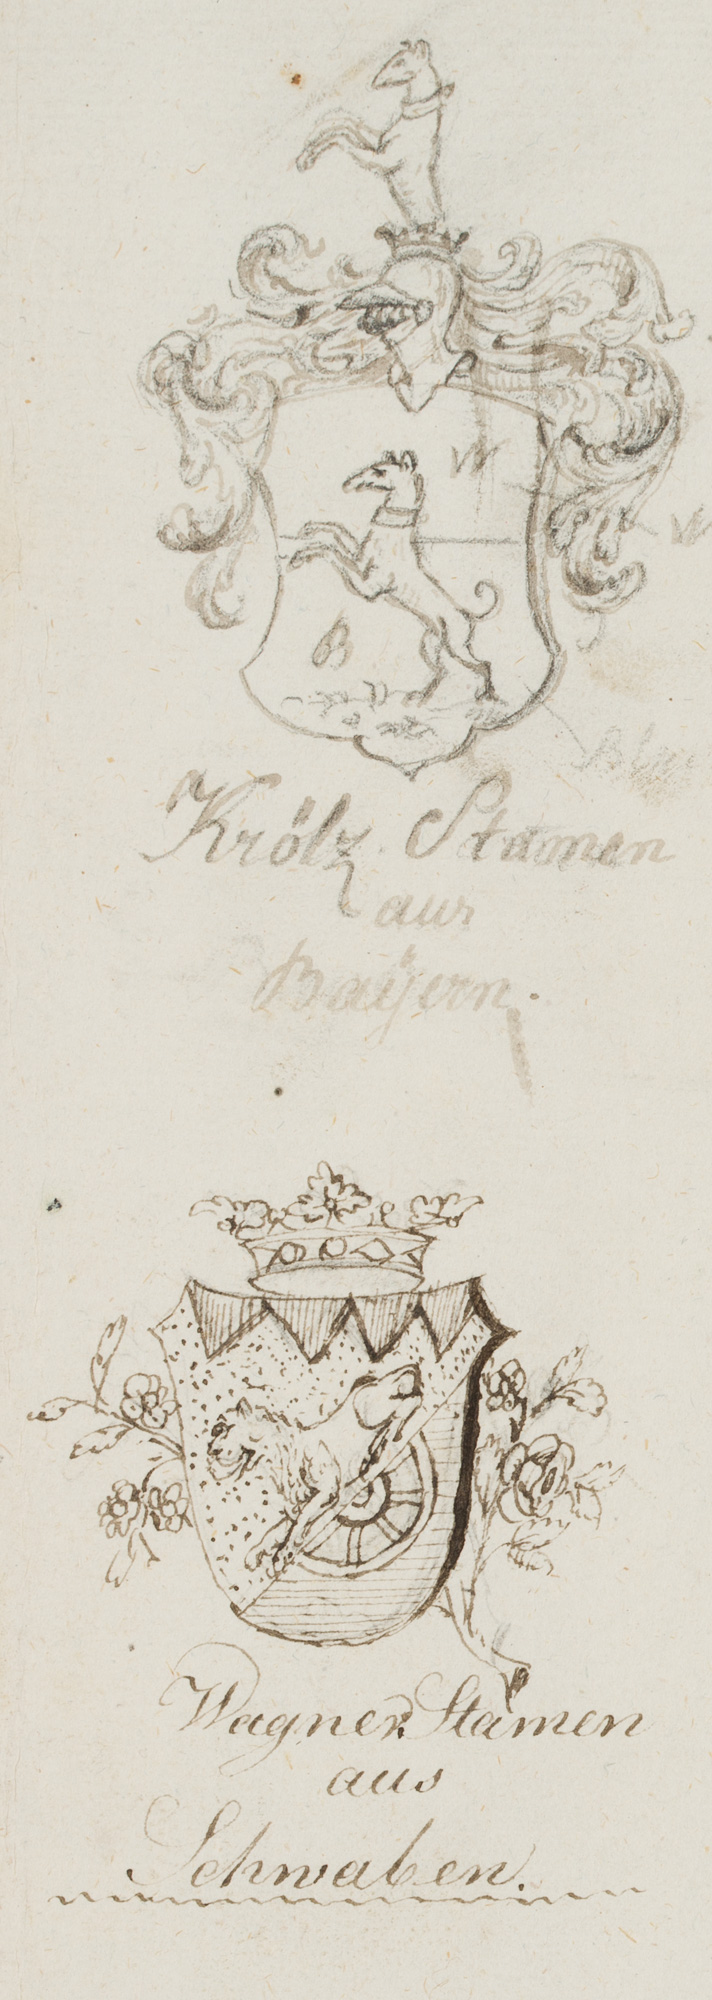 W
W
B
Krölz Stamen
aus
Baÿern.
Wagner Stamen
aus
Schwaben.